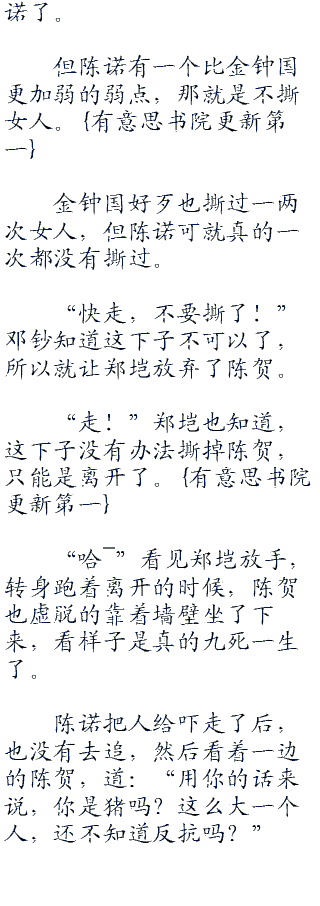 诺了。
但陈诺有一个比金钟国
更加弱的弱点，那就是不撕
女人。{有意思书院更新第
一}
金钟国好歹也撕过一两
次女人，但陈诺可就真的一
次都没有撕过。
“快走，不要撕了！”
邓钞知道这下子不可以了，
所以就让郑垲放弃了陈贺。
“走！”郑垲也知道，
这下子没有办法撕掉陈贺，
只能是离开了。{有意思书院
更新第一}
“哈¯”看见郑垲放手，
转身跑着离开的时候，陈贺
也虚脱的靠着墙壁坐了下
来，看样子是真的九死一生
了。
陈诺把人给吓走了后，
也没有去追，然后看着一边
的陈贺，道：“用你的话来
说，你是猪吗？这么大一个
人，还不知道反抗吗？”